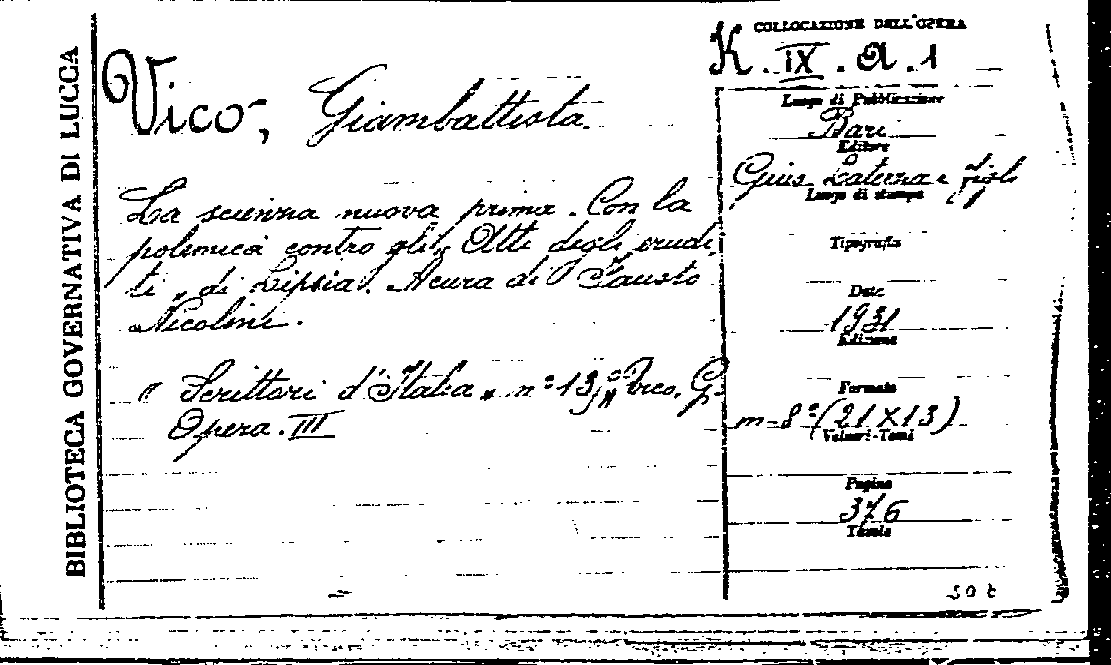 BIBLIOTECA GOVERNATIVA DI LUCCA
Vico, Giambattista.
La scienza nuova prima. Con la
polemica contro gli „ Atti degli erudi
ti „ di Lipsia. A cura di Fausto
Nicolini.
" Scrittori d'Italia „ n° 13
Vico, G.
Opera. III
COLLOCAZIONE DELL'OPERA
K. IX. A. 1
Luogo di Pubblicazione
Bari
Editore
Gius. Laterza e figli
Luogo di stampa
Tipografia
Data
1931
Edizione
Formato
m-8° (21 X 13)
Volumi-Tomi
Pagine
376
Tavole